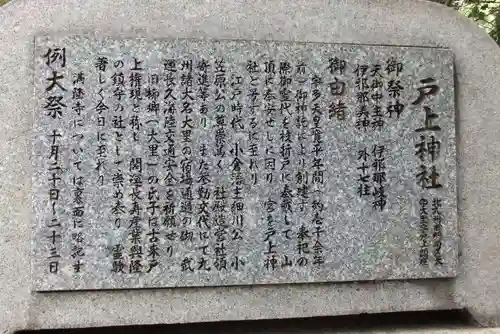 戸上神社
御祭神
天御中主神 伊邪那岐神
伊邪那美神 外十七柱
御由緒
宇多天皇寛平年間、約壱千余年
前、御神託により創建す。兼杞の
際御霊代を枝折戸に奉戴して、山
頂に奉安せしに因り、宮を戸上神
社と号するに至れり。
江戸時代、小倉藩主細川公、小
笠原公の尊崇篤く、社殿造営社領
寄進等あり、また参勤交代にて九
州諸大名大里の宿場通過の砌、武
運長久海陸交通安全を祈願せり。
旧柳郷(大里)の氏子は古来戸
上権現と称し、開運長寿産業興隆
の鎮守の社として崇め奉り、霊験
著しく今日に至れり。
満隆寺については裏面に略記す
例大祭 十月二十日〜二十三日